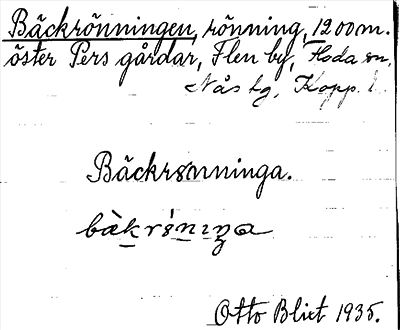 Bäckrönningen, rönning, 1200 m.
öster Pers gårdar, Flen by, Floda sn,
Nås tg, Kopp. l.
Bäckrönninga.
Otto Blixt 1935.